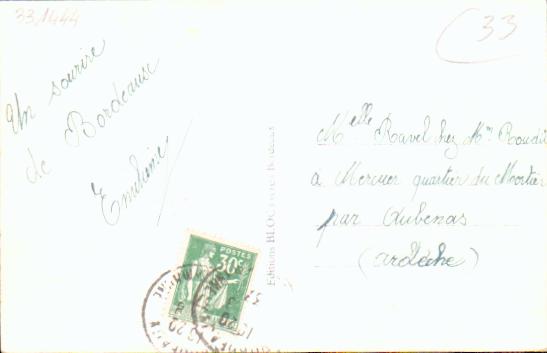 33 1444
33
Un sourire
de Bordeaux
Melle Ravel chez Mme
a Mercuer quartier du Mortier
par Aubenas
(ardèche)
Editions BLOC Bordeaux
POSTES
30c